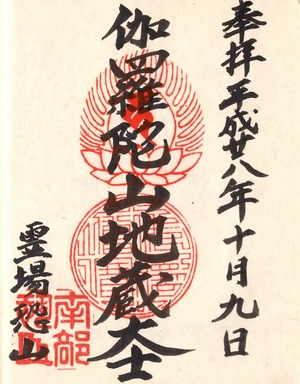 奉拝平成廿八年十月九日
伽羅陀山地蔵大士
霊場恐山
南部
恐山